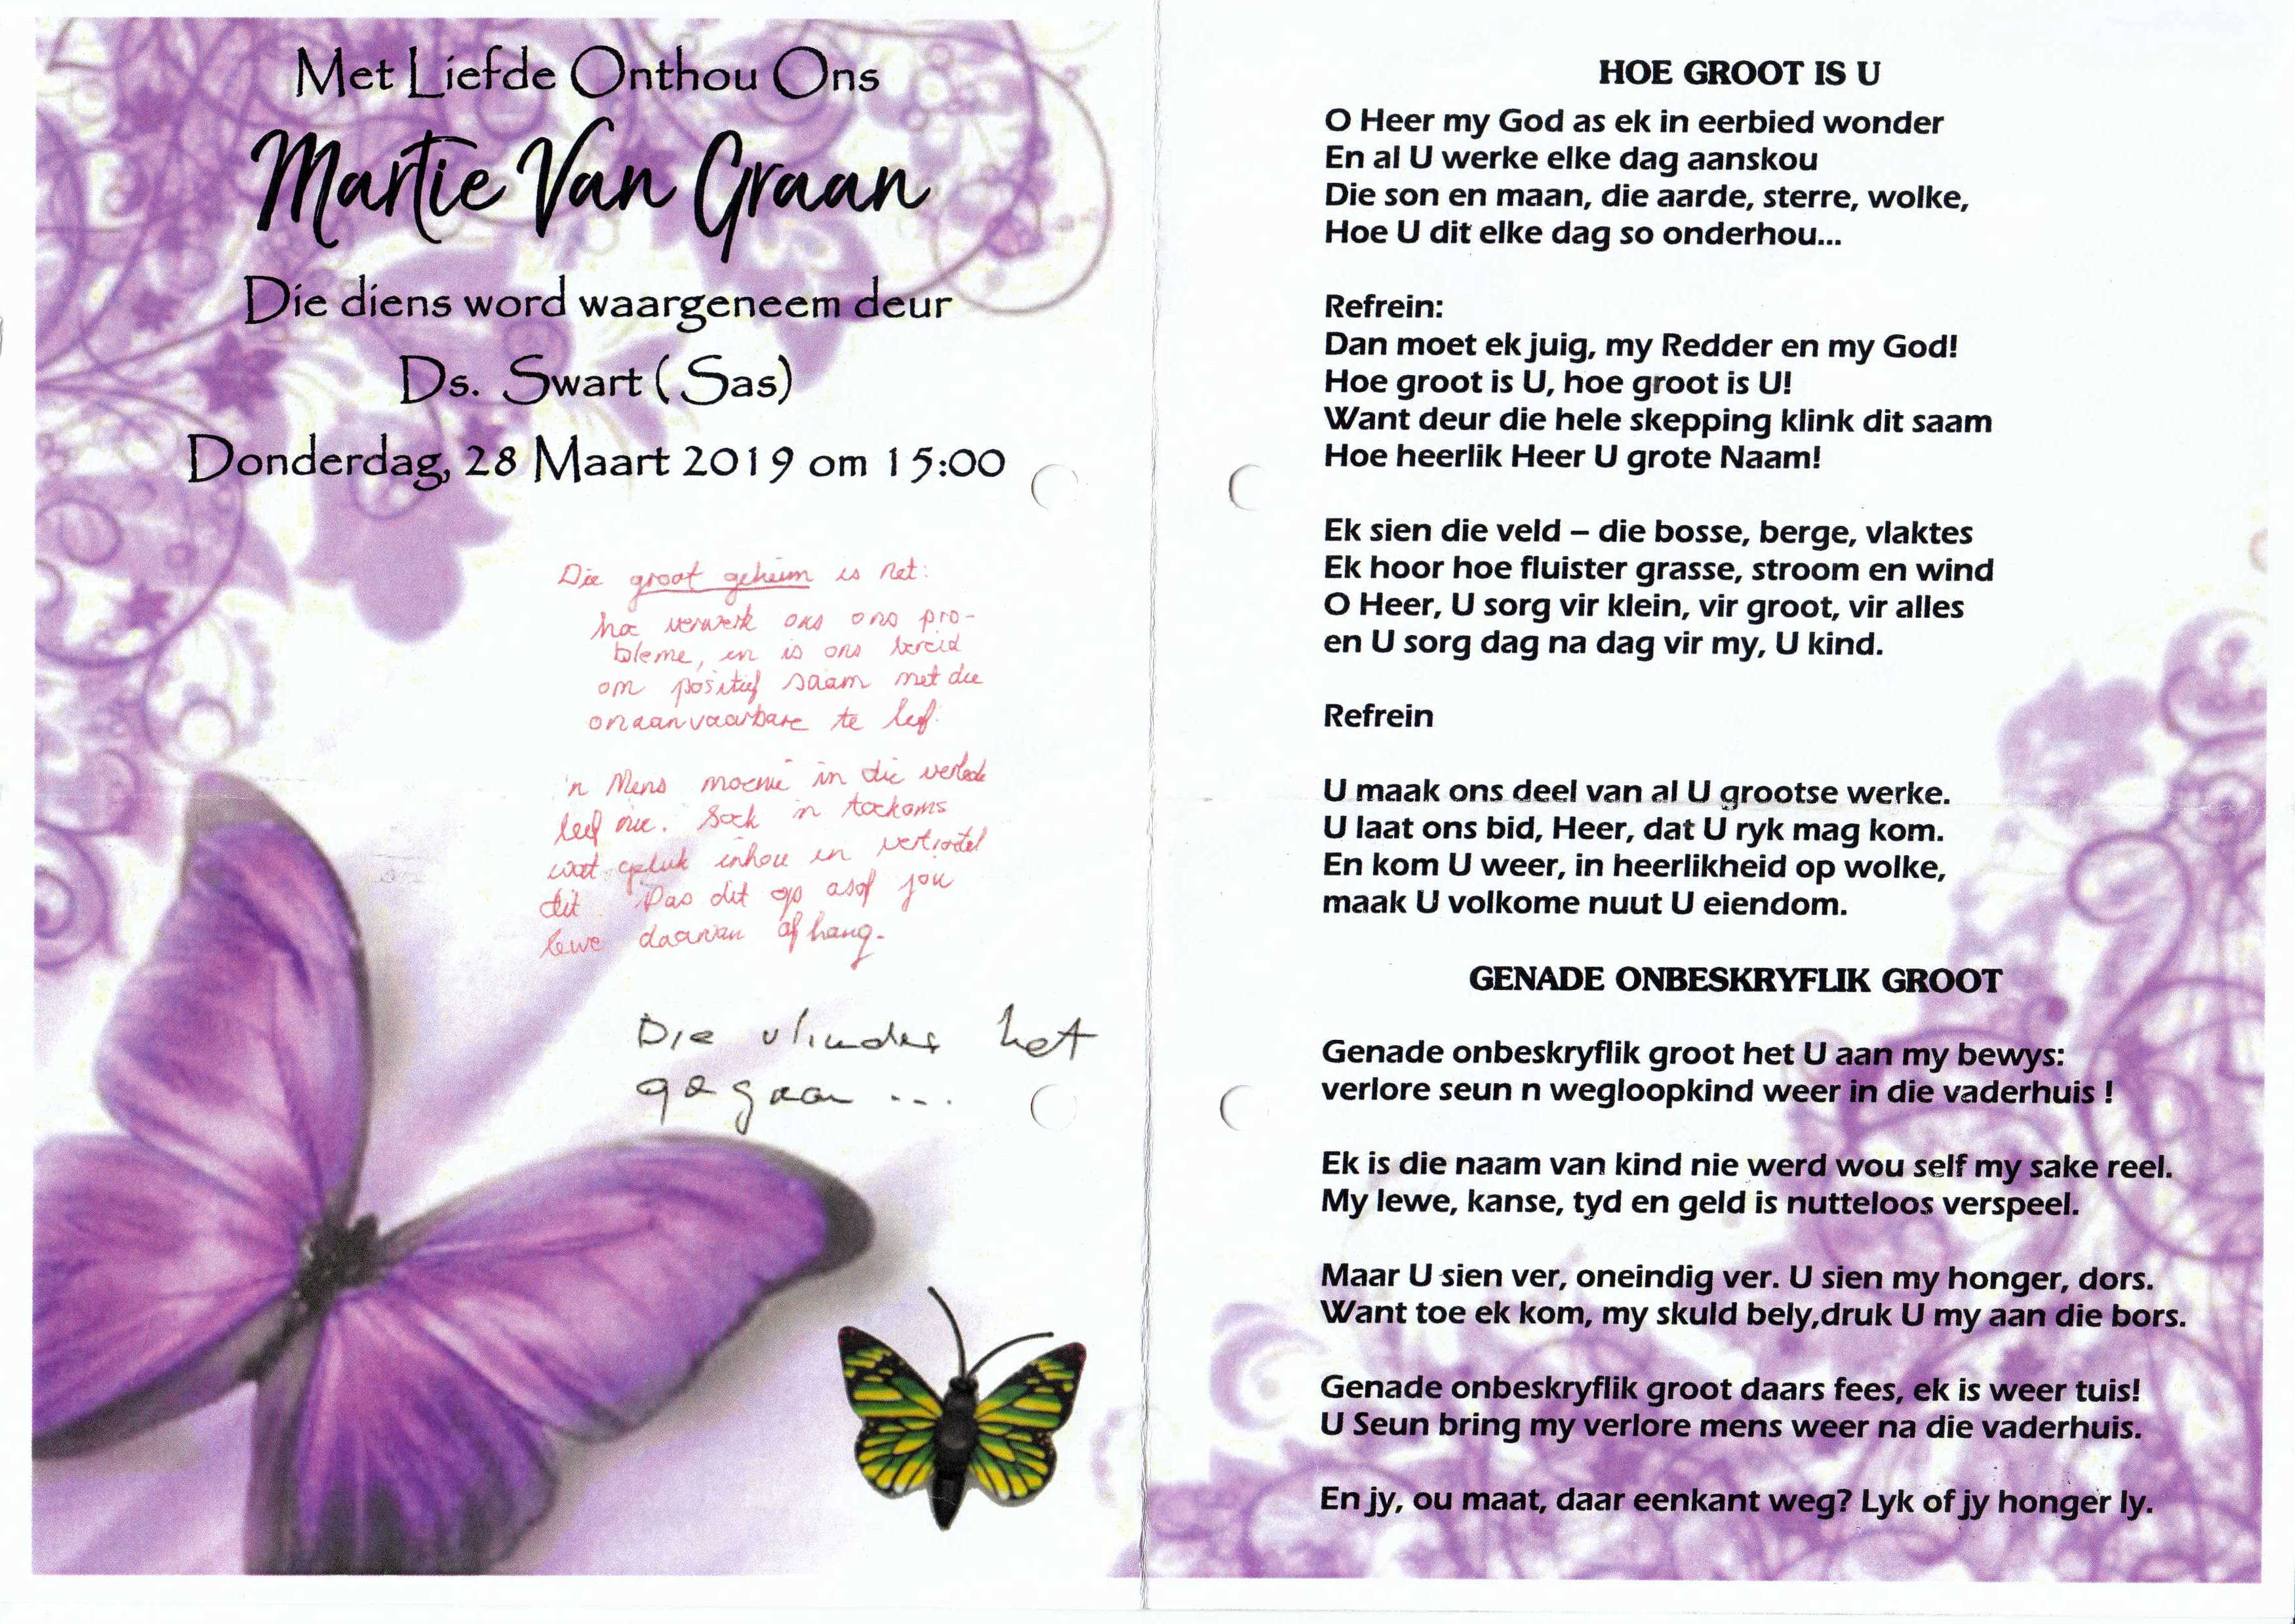 Met Liefde Onthou Ons
Martie Van Graan
Die diens word waargeneem deur
Ds. Swart (Sas)
Donderdag, 28 Maart 2019 om 15:00
Die groot geheim is net:
hoe verwerk ons ons pro-
bleme, en is ons bereid
om positief saam met die
onaanvaarbare te leef.
'n Mens moenie in die verlede
leef nie. Soek 'n toekoms
wat geluk inhou en vertroetel
dit. Pas dit op asof jou
lewe daarvan afhang.
Die vlinder het
gegaan ...
HOE GROOT IS U
O Heer my God as ek in eerbied wonder
En al U werke elke dag aanskou
Die son en maan, die aarde, sterre, wolke,
Hoe U dit elke dag so onderhou...
Refrein:
Dan moet ek juig, my Redder en my God!
Hoe groot is U, hoe groot is U!
Want deur die hele skepping klink dit saam
Hoe heerlik Heer U grote Naam!
Ek sien die veld – die bosse, berge, vlaktes
Ek hoor hoe fluister grasse, stroom en wind
O Heer, U sorg vir klein, vir groot, vir alles
en U sorg dag na dag vir my, U kind.
Refrein
U maak ons deel van al U grootse werke.
U laat ons bid, Heer, dat U ryk mag kom.
En kom U weer, in heerlikheid op wolke,
maak U volkome nuut U eiendom.
GENADE ONBESKRYFLIK GROOT
Genade onbeskryflik groot het U aan my bewys:
verlore seun n wegloopkind weer in die vaderhuis !
Ek is die naam van kind nie werd wou self my sake reel.
My lewe, kanse, tyd en geld is nutteloos verspeel.
Maar U sien ver, oneindig ver. U sien my honger, dors.
Want toe ek kom, my skuld bely,druk U my aan die bors.
Genade onbeskryflik groot daars fees, ek is weer tuis!
U Seun bring my verlore mens weer na die vaderhuis.
En jy, ou maat, daar eenkant weg? Lyk of jy honger ly.